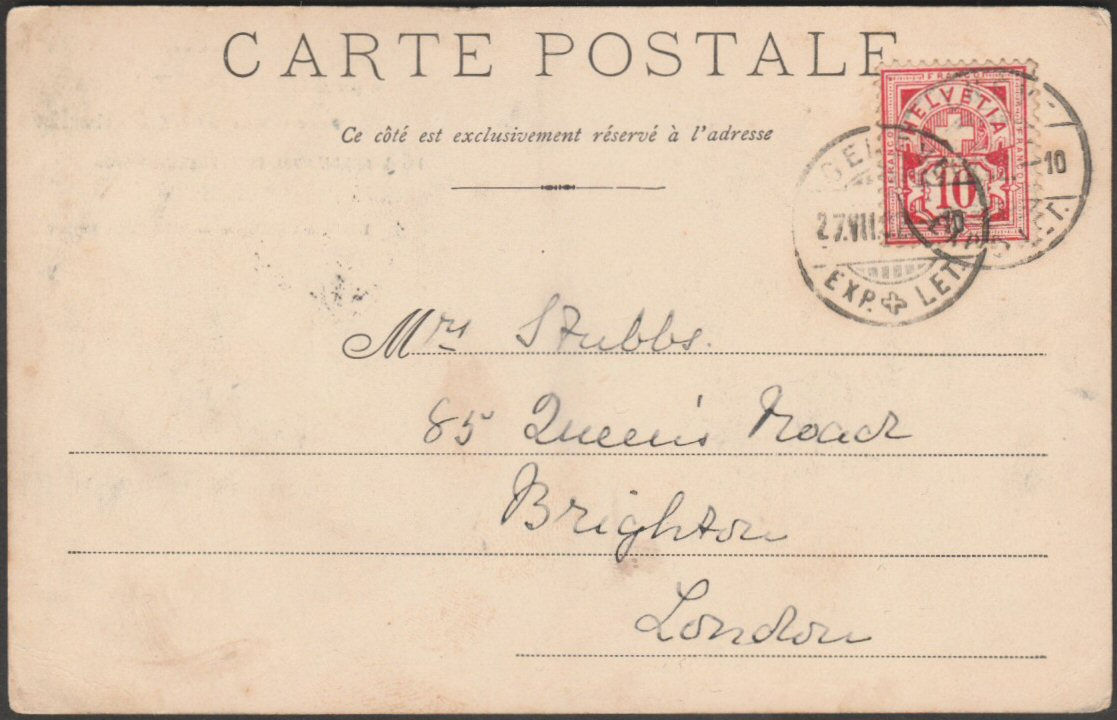 CARTE POSTALE
Ce côté est exclusivement réservé à l'adresse
FRANCO
HELVETIA
FRANCO
FRANCO
10
10
27.VII.
10
EXP. LET.
LET.
Mrs Stubbs.
85 Queen's Road
Brighton
London